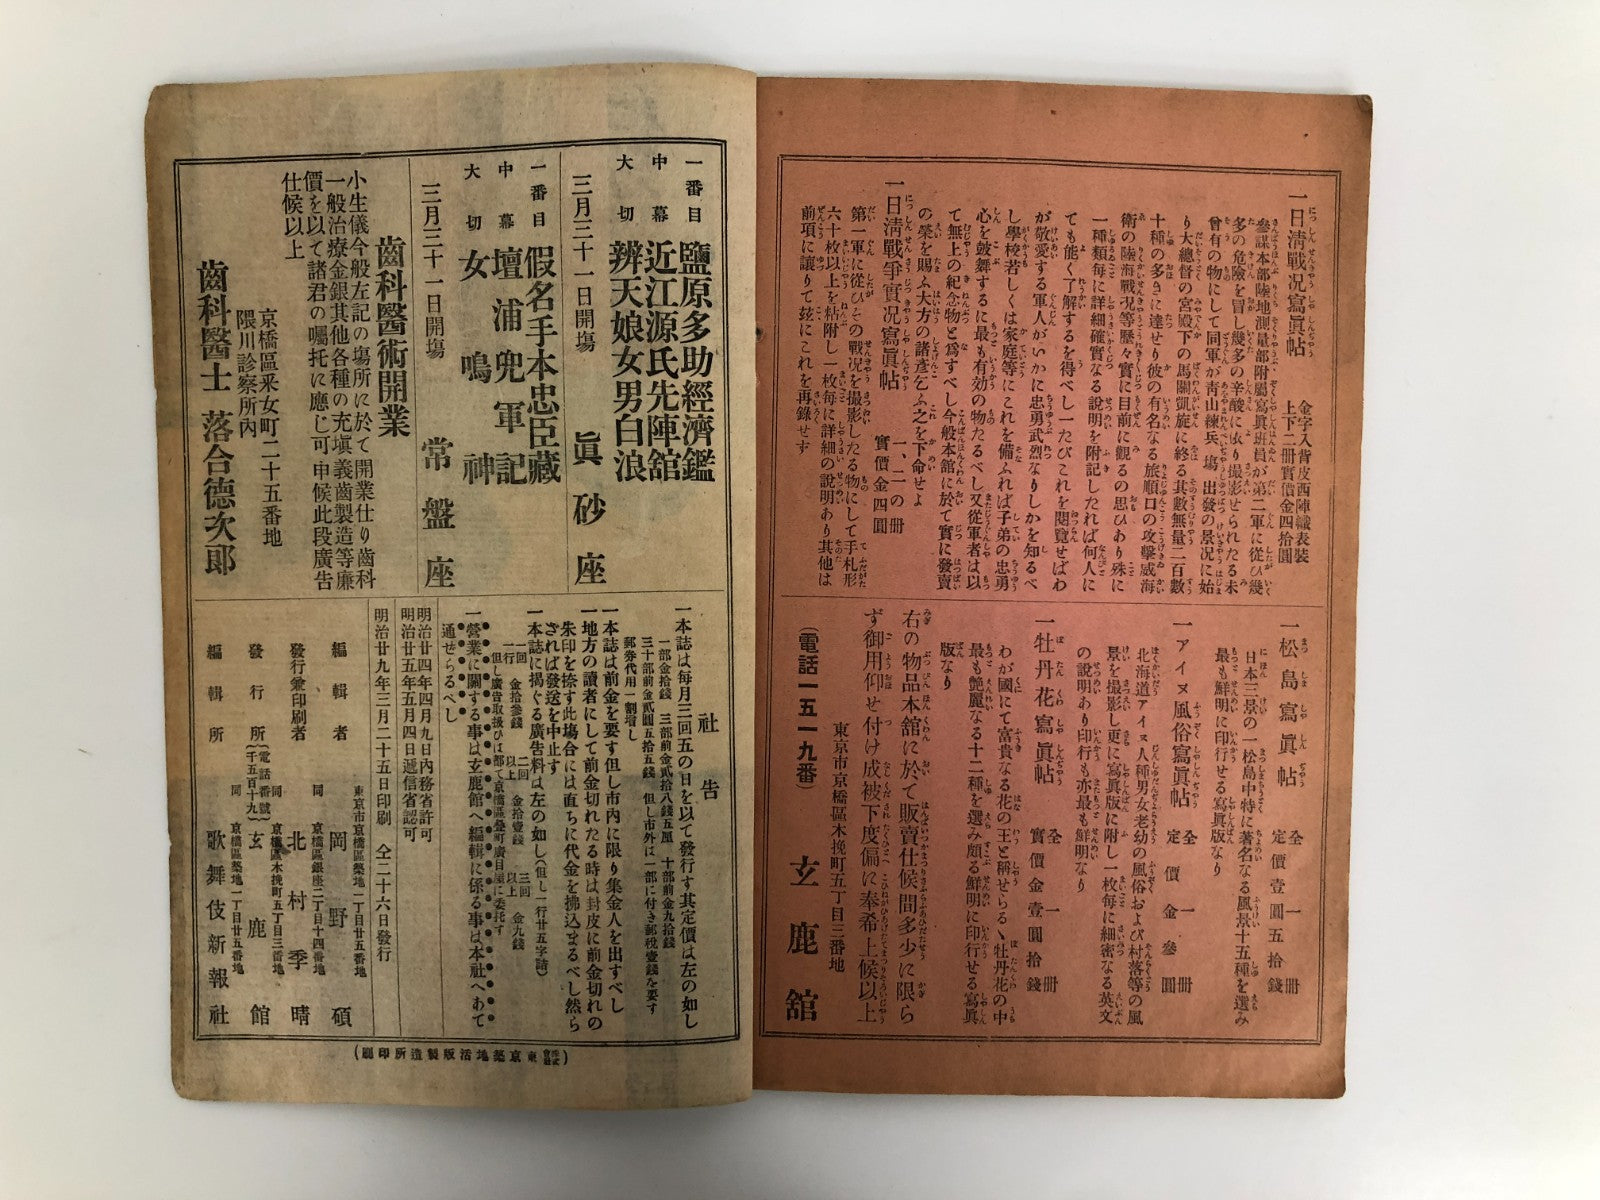 一日淸戰況寫眞帖
金字入背皮西陣織表裝
上下二册實價金四拾圓
參謀本部陸地測量部附屬寫眞班員が第二軍に從ひ幾
多の危險を冒し幾多の辛酸に依り撮影せられたる未
曾有の物にして同軍が靑山練兵塲出發の景況に始
り大總督の宮殿下の馬關凱旋に終る其數無量二百數
十種の多きに達せり彼の有名なる旅順口の攻擊威海
衛の陸海戰況等歷々實に目前に觀るの思ひあり殊に
一種類每に詳細確實なる說明を附記したれば何人に
ても能く了解するを得べし一たびこれを閱覽せばわ
が敬愛する軍人がいかに忠勇武烈なりしかを知るべ
し學校若しくは家庭等にこれを備ふれば子弟の忠勇
心を鼓舞するに最も有効の物たるべし又從軍者は以
て無上の紀念物と爲すべし今般本舘に於て實に發賣
の榮を賜ふ大方の諸彥乞ふ之を下命せよ
一日淸戰爭實況寫眞帖
一、二の册
實價金四圓
第一軍に從ひその戰況を撮影したる物にして手札形
六十枚以上を粘附し一枚每に詳細の說明あり其他は
前項に讓りて玆にこれを再錄せす
一松島寫眞帖
全一册
定價壹圓五拾錢
日本三景の一松島中特に著名なる風景十五種を選み
最も鮮明に印行せる寫眞版なり
一アイヌ風俗寫眞帖
全一册
定價金參圓
北海道アイヌ人種男女老幼の風俗および村落等の風
景を撮影し更に寫眞版に附し一枚每に細密なる英文
の說明あり印行も亦最も鮮明なり
一牡丹花寫眞帖
全一册
實價金壹圓拾錢
わが國にて富貴なる花の王と稱せらるゝ牡丹花の中
最も艷麗なる十二種を選み頗る鮮明に印行せる寫眞
版なり
右の物品本舘に於て販賣仕候間多少に限ら
ず御用仰せ付け成被下度偏に奉希上候以上
東京市京橋區木挽町五丁目三番地
（電話一五一九番）
玄鹿舘
一番目 鹽原多助經濟鑑
中幕 近江源氏先陣舘
大切 辨天娘女男白浪
三月三十一日開塲 眞砂座
一番目 假名手本忠臣藏
中幕 壇浦兜軍記
大切 女鳴神
三月三十一日開塲 常盤座
齒科醫術開業
小生儀今般左記の塲所に於て開業仕り齒科
一般治療金銀其他各種の充塡義齒製造等廉
價を以て諸君の囑托に應じ可申候此段廣告
仕候以上
京橋區釆女町二十五番地
隈川診察所內
齒科醫士 落合德次郞
社告
一本誌は每月三回五の日を以て發行す其定價は左の如し
一部金拾錢 三部前金貳拾八錢五厘 十部前金九拾錢
三十部前金貳圓五拾五錢 但し市外は一部に付き郵稅壹錢を要す
郵券代用一割增し
一本誌は前金を要す但し市內に限り集金人を出すべし
一地方の讀者にして前金切れたる時は封皮に前金切れの
朱印を捺す此場合には直ちに代金を拂込まるべし然ら
ざれば發送を中止す
一本誌に揭ぐる廣告料は左の如し（但し一行廿五字詰）
一行一回 金拾參錢 二回以上 金拾壹錢 三回以上 金九錢
但し廣告取扱ひは都て京橋區疊町廣目屋に委托す
一營業に關する事は玄鹿館へ編輯に係る事は本社へあて
通せらるべし
明治廿四年四月九日內務省許可
明治廿五年五月四日遞信省認可
明治廿九年三月二十五日印刷 仝二十六日發行
東京市京橋區築地一丁目廿五番地
編輯者 岡野碩
同 京橋區銀座二丁目十四番地
發行兼印刷者 北村季晴
同 京橋區木挽町五丁目三番地
發行所（電話番號千五百十九） 玄鹿館
同 京橋區築地一丁目廿五番地
編輯所 歌舞伎新報社
（株式會社東京築地活版製造所印刷）